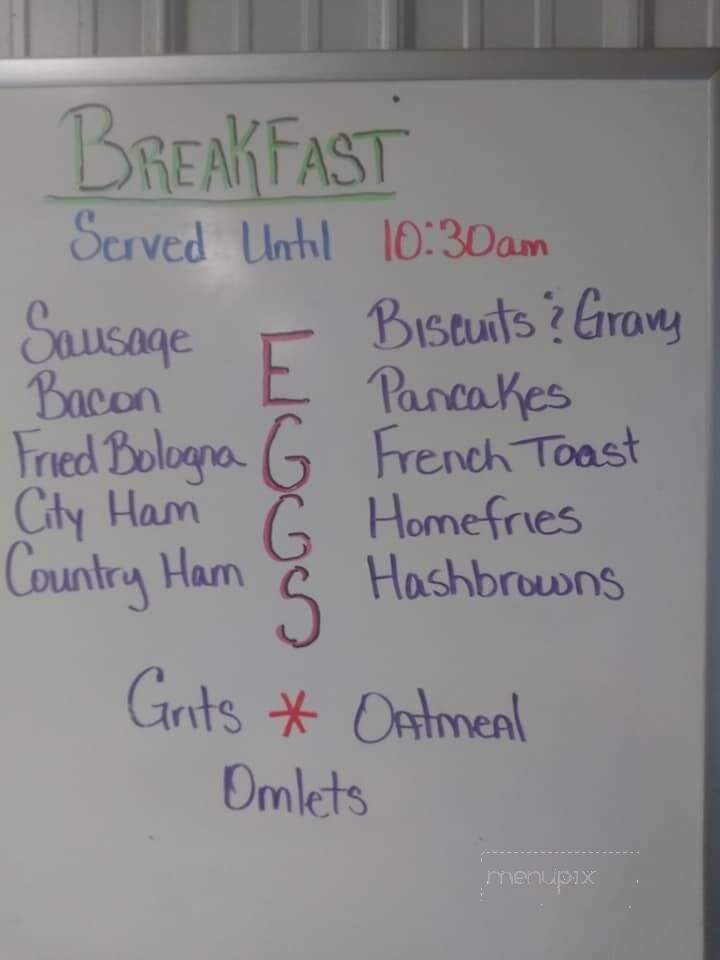 BREAKFAST
Served Until 10:30am
Sausage
Bacon
Fried Bologna
City Ham
Country Ham
E
G
G
S
Biscuits & Gravy
Pancakes
French Toast
Homefries
Hashbrowns
Grits * Oatmeal
Omlets
menupix